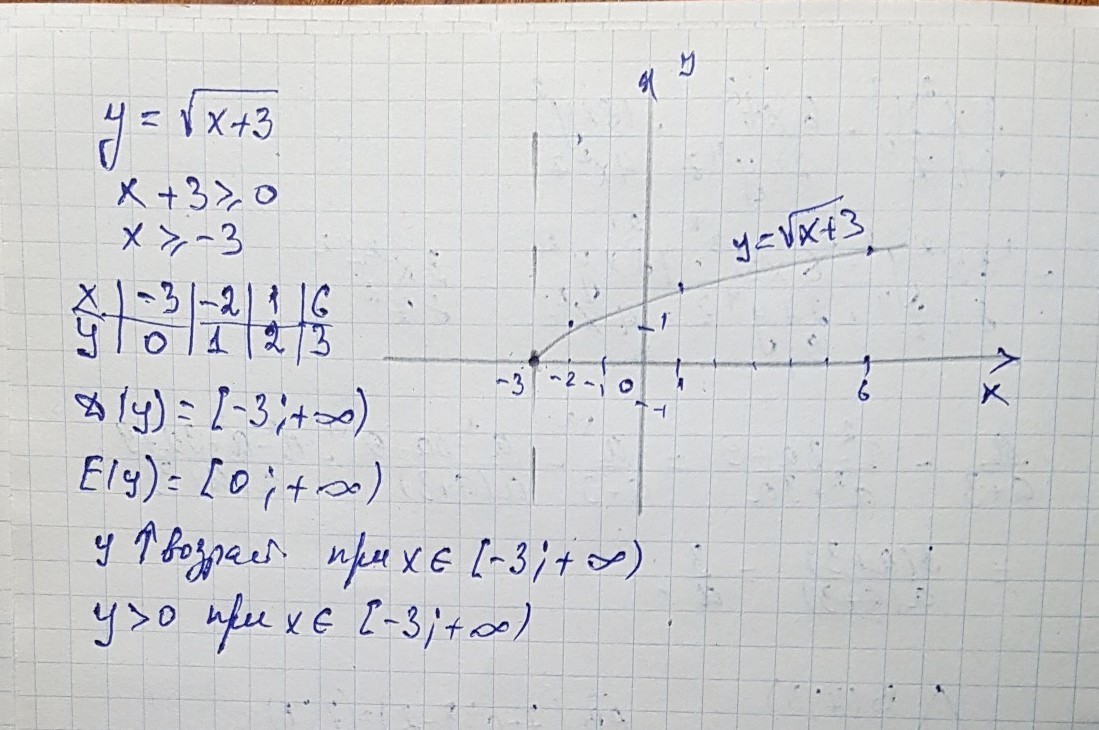 y = √x+3
x + 3 ≥ 0
x ≥ -3
x | -3 | -2 | 1 | 6
y | 0 | 1 | 2 | 3
D(y) = [-3; +∞)
E(y) = [0; +∞)
y ↑ возраст при x ∈ [-3; +∞)
y > 0 при x ∈ [-3; +∞)
y
y = √x+3
1
-3 -2 -1 0 1 6 x
-1